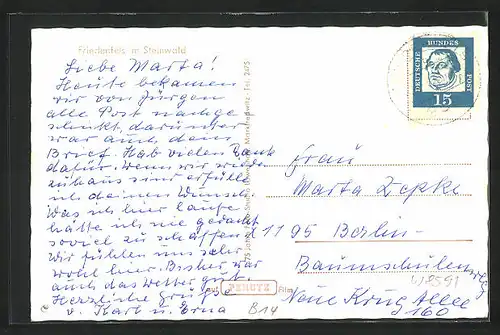 Friedenfels im Steinwald
Liebe Marta!
Heute bekamen
wir von Jürgen
alle Post nachge
schickt, darunter
war auch dein
Brief. Hab vielen Dank
dafür. Wenn wir wieder
zuhaus sind erfülle
ich deinen Wunsch.
Was ich hier laufe
hätte ich nie gedacht
soviel zu schaffen
Wir fühlen uns sehr
wohl hier. Bisher war
auch das Wetter gut.
Herzliche Grüße
v. Karl u. Erna
B14
auf PERUTZ Film
DEUTSCHE BUNDES POST
15
Frau
Marta Zepke
1195 Berlin-
Baumschulenweg
Neue Krug Allee
160